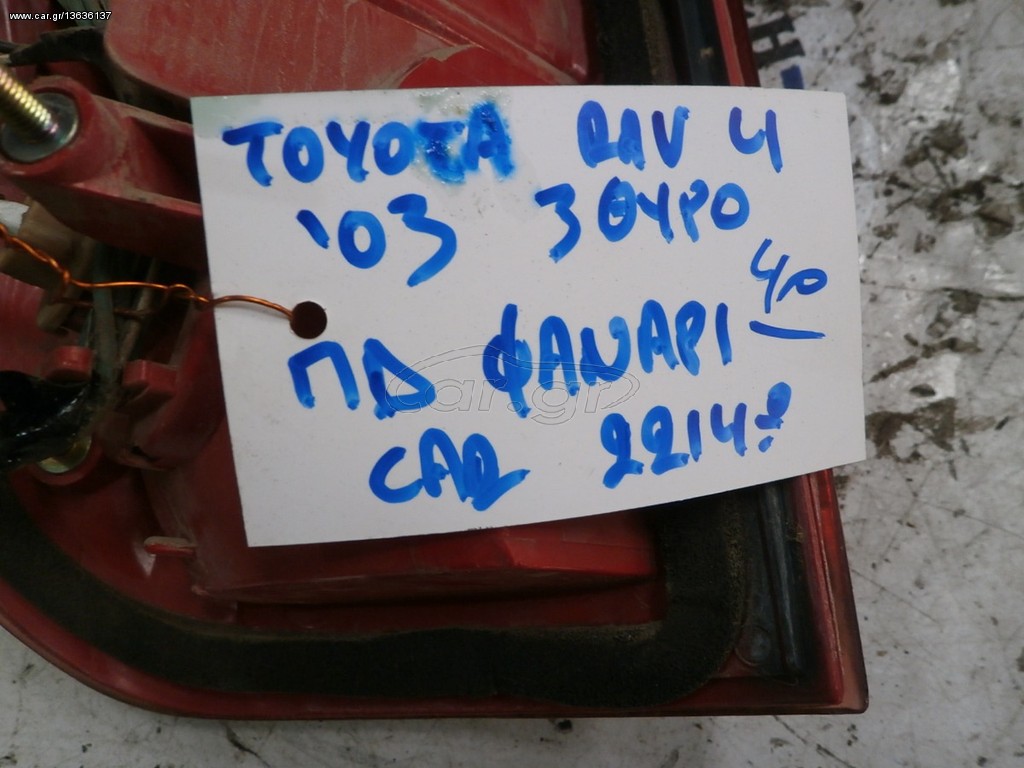 www.car.gr/13636137
TOYOTA RAV 4
'03 3ΘΥΡΟ
40
ΠΔ ΦΑΝΑΡΙ
car.gr
CAR